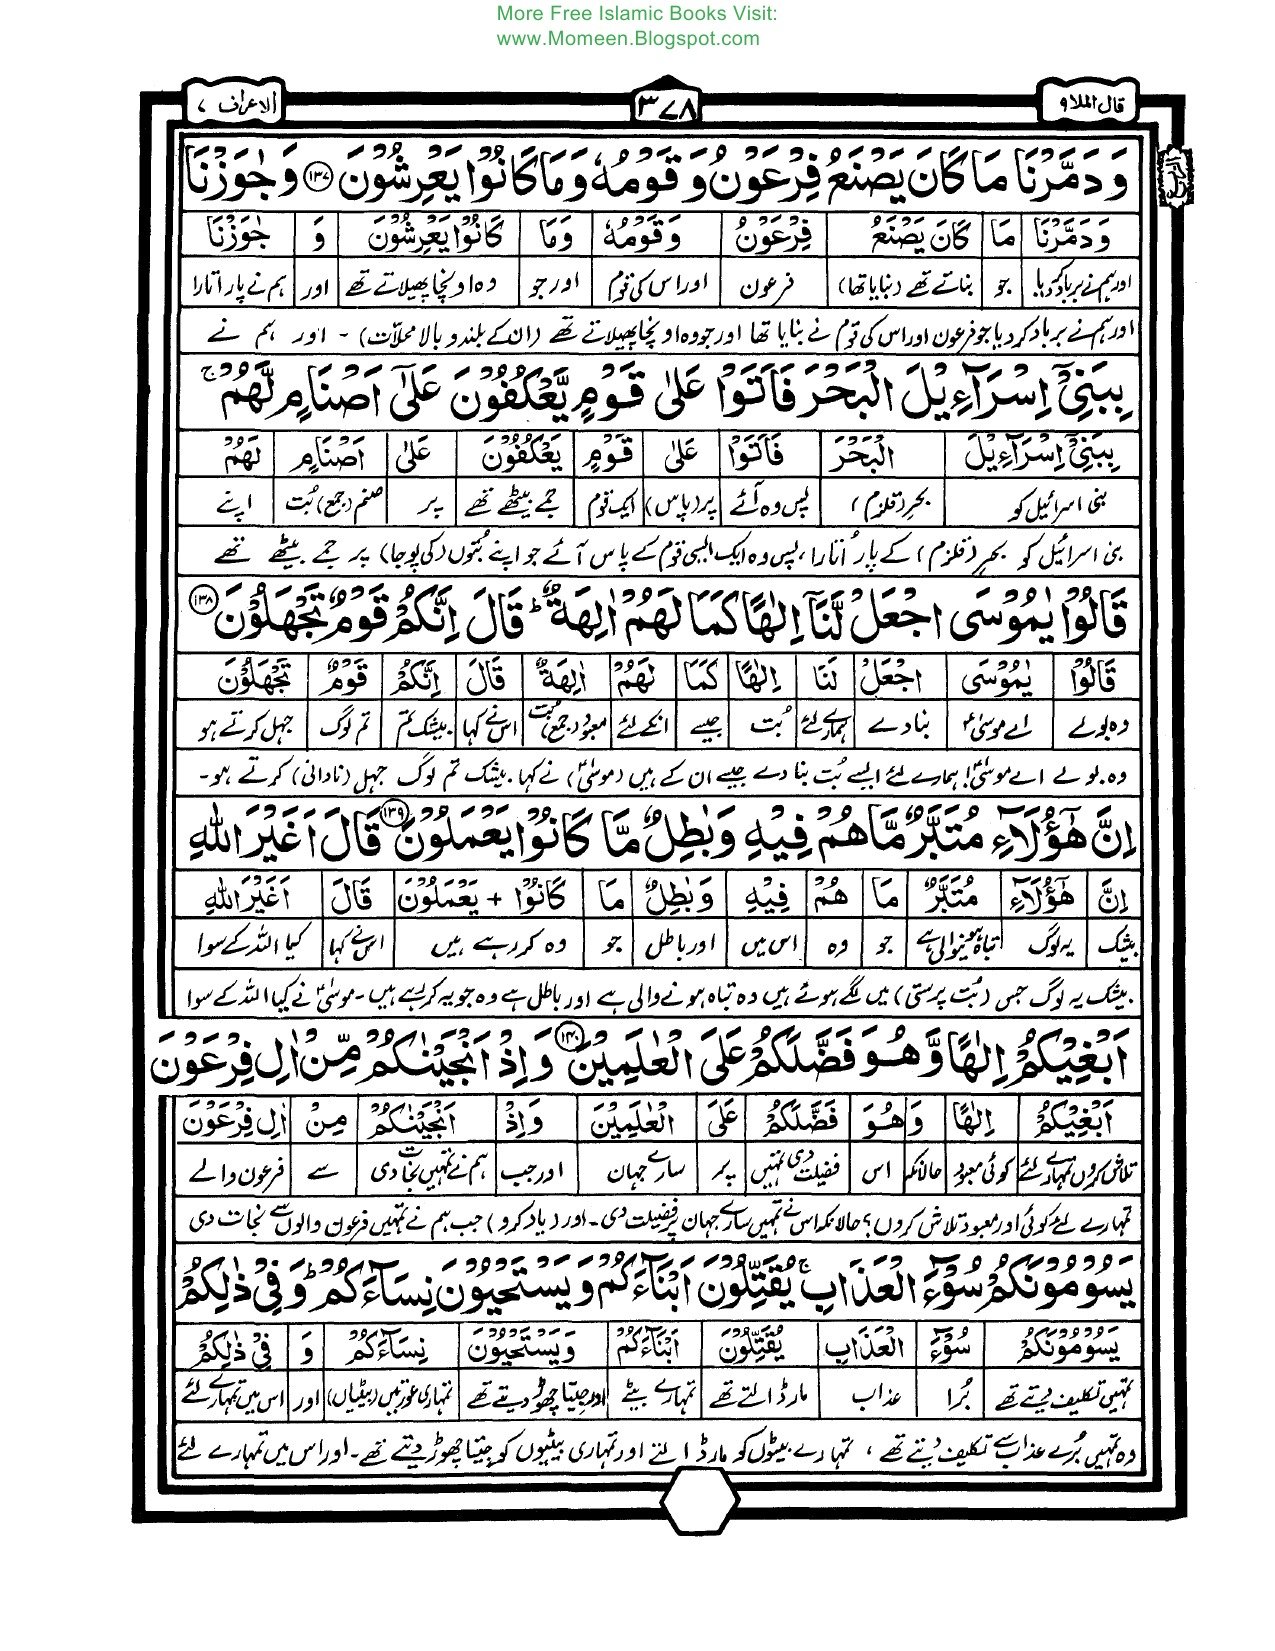 More Free Islamic Books Visit:
www.Momeen.Blogspot.com
قال الملا ٩ ٣٧٨ الاعراف ٧
الربع
وَدَمَّرْنَا مَا كَانَ يَصْنَعُ فِرْعَوْنُ وَقَوْمُهٗ وَمَا كَانُوْا يَعْرِشُوْنَ ١٣٧ وَجٰوَزْنَا
وَدَمَّرْنَا مَا كَانَ يَصْنَعُ فِرْعَوْنُ وَقَوْمُهٗ وَمَا كَانُوْا يَعْرِشُوْنَ وَ جٰوَزْنَا
اور ہم نے برباد کردیا جو بناتے تھے (بنایا تھا) فرعون اور اس کی قوم اور جو وہ اونچا پھیلاتے تھے اور ہم نے پار اتارا
اور ہم نے برباد کر دیا جو فرعون اور اس کی قوم نے بنایا تھا اور جو وہ اونچا پھیلاتے تھے (ان کے بلند و بالا محلات) - اور ہم نے
بِبَنِيْٓ اِسْرَآءِيْلَ الْبَحْرَ فَاَتَوْا عَلٰى قَوْمٍ يَّعْكُفُوْنَ عَلٰٓى اَصْنَامٍ لَّهُمْ ۚ
بِبَنِيْٓ اِسْرَآءِيْلَ الْبَحْرَ فَاَتَوْا عَلٰى قَوْمٍ يَعْكُفُوْنَ عَلٰٓى اَصْنَامٍ لَهُمْ
بنی اسرائیل کو بحر (قلزم) پس وہ آئے پر (پاس) ایک قوم جمے بیٹھے تھے پر صنم (جمع) بُت اپنے
بنی اسرائیل کو بحر (قلزم) کے پار اُتارا، پس وہ ایک ایسی قوم کے پاس آئے جو اپنے بُتوں (کی پوجا) پر جمے بیٹھے تھے
قَالُوْا يٰمُوْسَى اجْعَلْ لَّنَآ اِلٰهًا كَمَا لَهُمْ اٰلِهَةٌ ؕ قَالَ اِنَّكُمْ قَوْمٌ تَجْهَلُوْنَ ١٣٨
قَالُوْا يٰمُوْسَى اجْعَلْ لَنَا اِلٰهًا كَمَا لَهُمْ اٰلِهَةٌ قَالَ اِنَّكُمْ قَوْمٌ تَجْهَلُوْنَ
وہ بولے اے موسیٰؑ بنادے ہمارے لئے بُت جیسے انکے لئے معبود (جمع) بت اس نے کہا بیشک تم تم لوگ جہل کرتے ہو
وہ بولے اے موسیٰؑ! ہمارے لئے ایسے بُت بنا دے جیسے ان کے ہیں (موسیٰؑ) نے کہا۔ بیشک تم لوگ جہل (نادانی) کرتے ہو-
اِنَّ هٰٓؤُلَآءِ مُتَبَّرٌ مَّا هُمْ فِيْهِ وَبٰطِلٌ مَّا كَانُوْا يَعْمَلُوْنَ ١٣٩ قَالَ اَغَيْرَ اللّٰهِ
اِنَّ هٰٓؤُلَآءِ مُتَبَّرٌ مَا هُمْ فِيْهِ وَبٰطِلٌ مَا كَانُوْا + يَعْمَلُوْنَ قَالَ اَغَيْرَ اللّٰهِ
بیشک یہ لوگ تباہ ہونیوالی ہے جو وہ اس میں اور باطل جو وہ کر رہے ہیں اس نے کہا کیا اللہ کے سوا
بیشک یہ لوگ جس (بُت پرستی) میں لگے ہوئے ہیں وہ تباہ ہونے والی ہے اور باطل ہے وہ جو یہ کر رہے ہیں - موسیٰؑ نے کہا کیا اللہ کے سوا
اَبْغِيْكُمْ اِلٰهًا وَّهُوَ فَضَّلَكُمْ عَلَى الْعٰلَمِيْنَ ١٤٠ وَاِذْ اَنْجَيْنٰكُمْ مِّنْ اٰلِ فِرْعَوْنَ
اَبْغِيْكُمْ اِلٰهًا وَ هُوَ فَضَّلَكُمْ عَلَى الْعٰلَمِيْنَ وَاِذْ اَنْجَيْنٰكُمْ مِنْ اٰلِ فِرْعَوْنَ
تلاش کروں تمہارے لئے کوئی معبود حالانکہ اس فضیلت دی تمہیں پر سارے جہان اور جب ہم نے تمہیں نجات دی سے فرعون والے
تمہارے لئے کوئی اور معبود تلاش کروں؟ حالانکہ اس نے تمہیں سارے جہان پر فضیلت دی - اور (یاد کرو) جب ہم نے تمہیں فرعون والوں سے نجات دی
يَسُوْمُوْنَكُمْ سُوْٓءَ الْعَذَابِ ۚ يُقَتِّلُوْنَ اَبْنَآءَكُمْ وَيَسْتَحْيُوْنَ نِسَآءَكُمْ ؕ وَفِيْ ذٰلِكُمْ
يَسُوْمُوْنَكُمْ سُوْٓءَ الْعَذَابِ يُقَتِّلُوْنَ اَبْنَآءَكُمْ وَيَسْتَحْيُوْنَ نِسَآءَكُمْ وَ فِيْ ذٰلِكُمْ
تمہیں تکلیف دیتے تھے بُرا عذاب مار ڈالتے تھے تمہارے بیٹے اور جیتا چھوڑ دیتے تھے تمہاری عورتیں (بیٹیاں) اور اس میں تمہارے لئے
وہ تمہیں بُرے عذاب سے تکلیف دیتے تھے، تمہارے بیٹوں کو مار ڈالتے اور تمہاری بیٹیوں کو جیتا چھوڑ دیتے تھے - اور اس میں تمہارے لئے